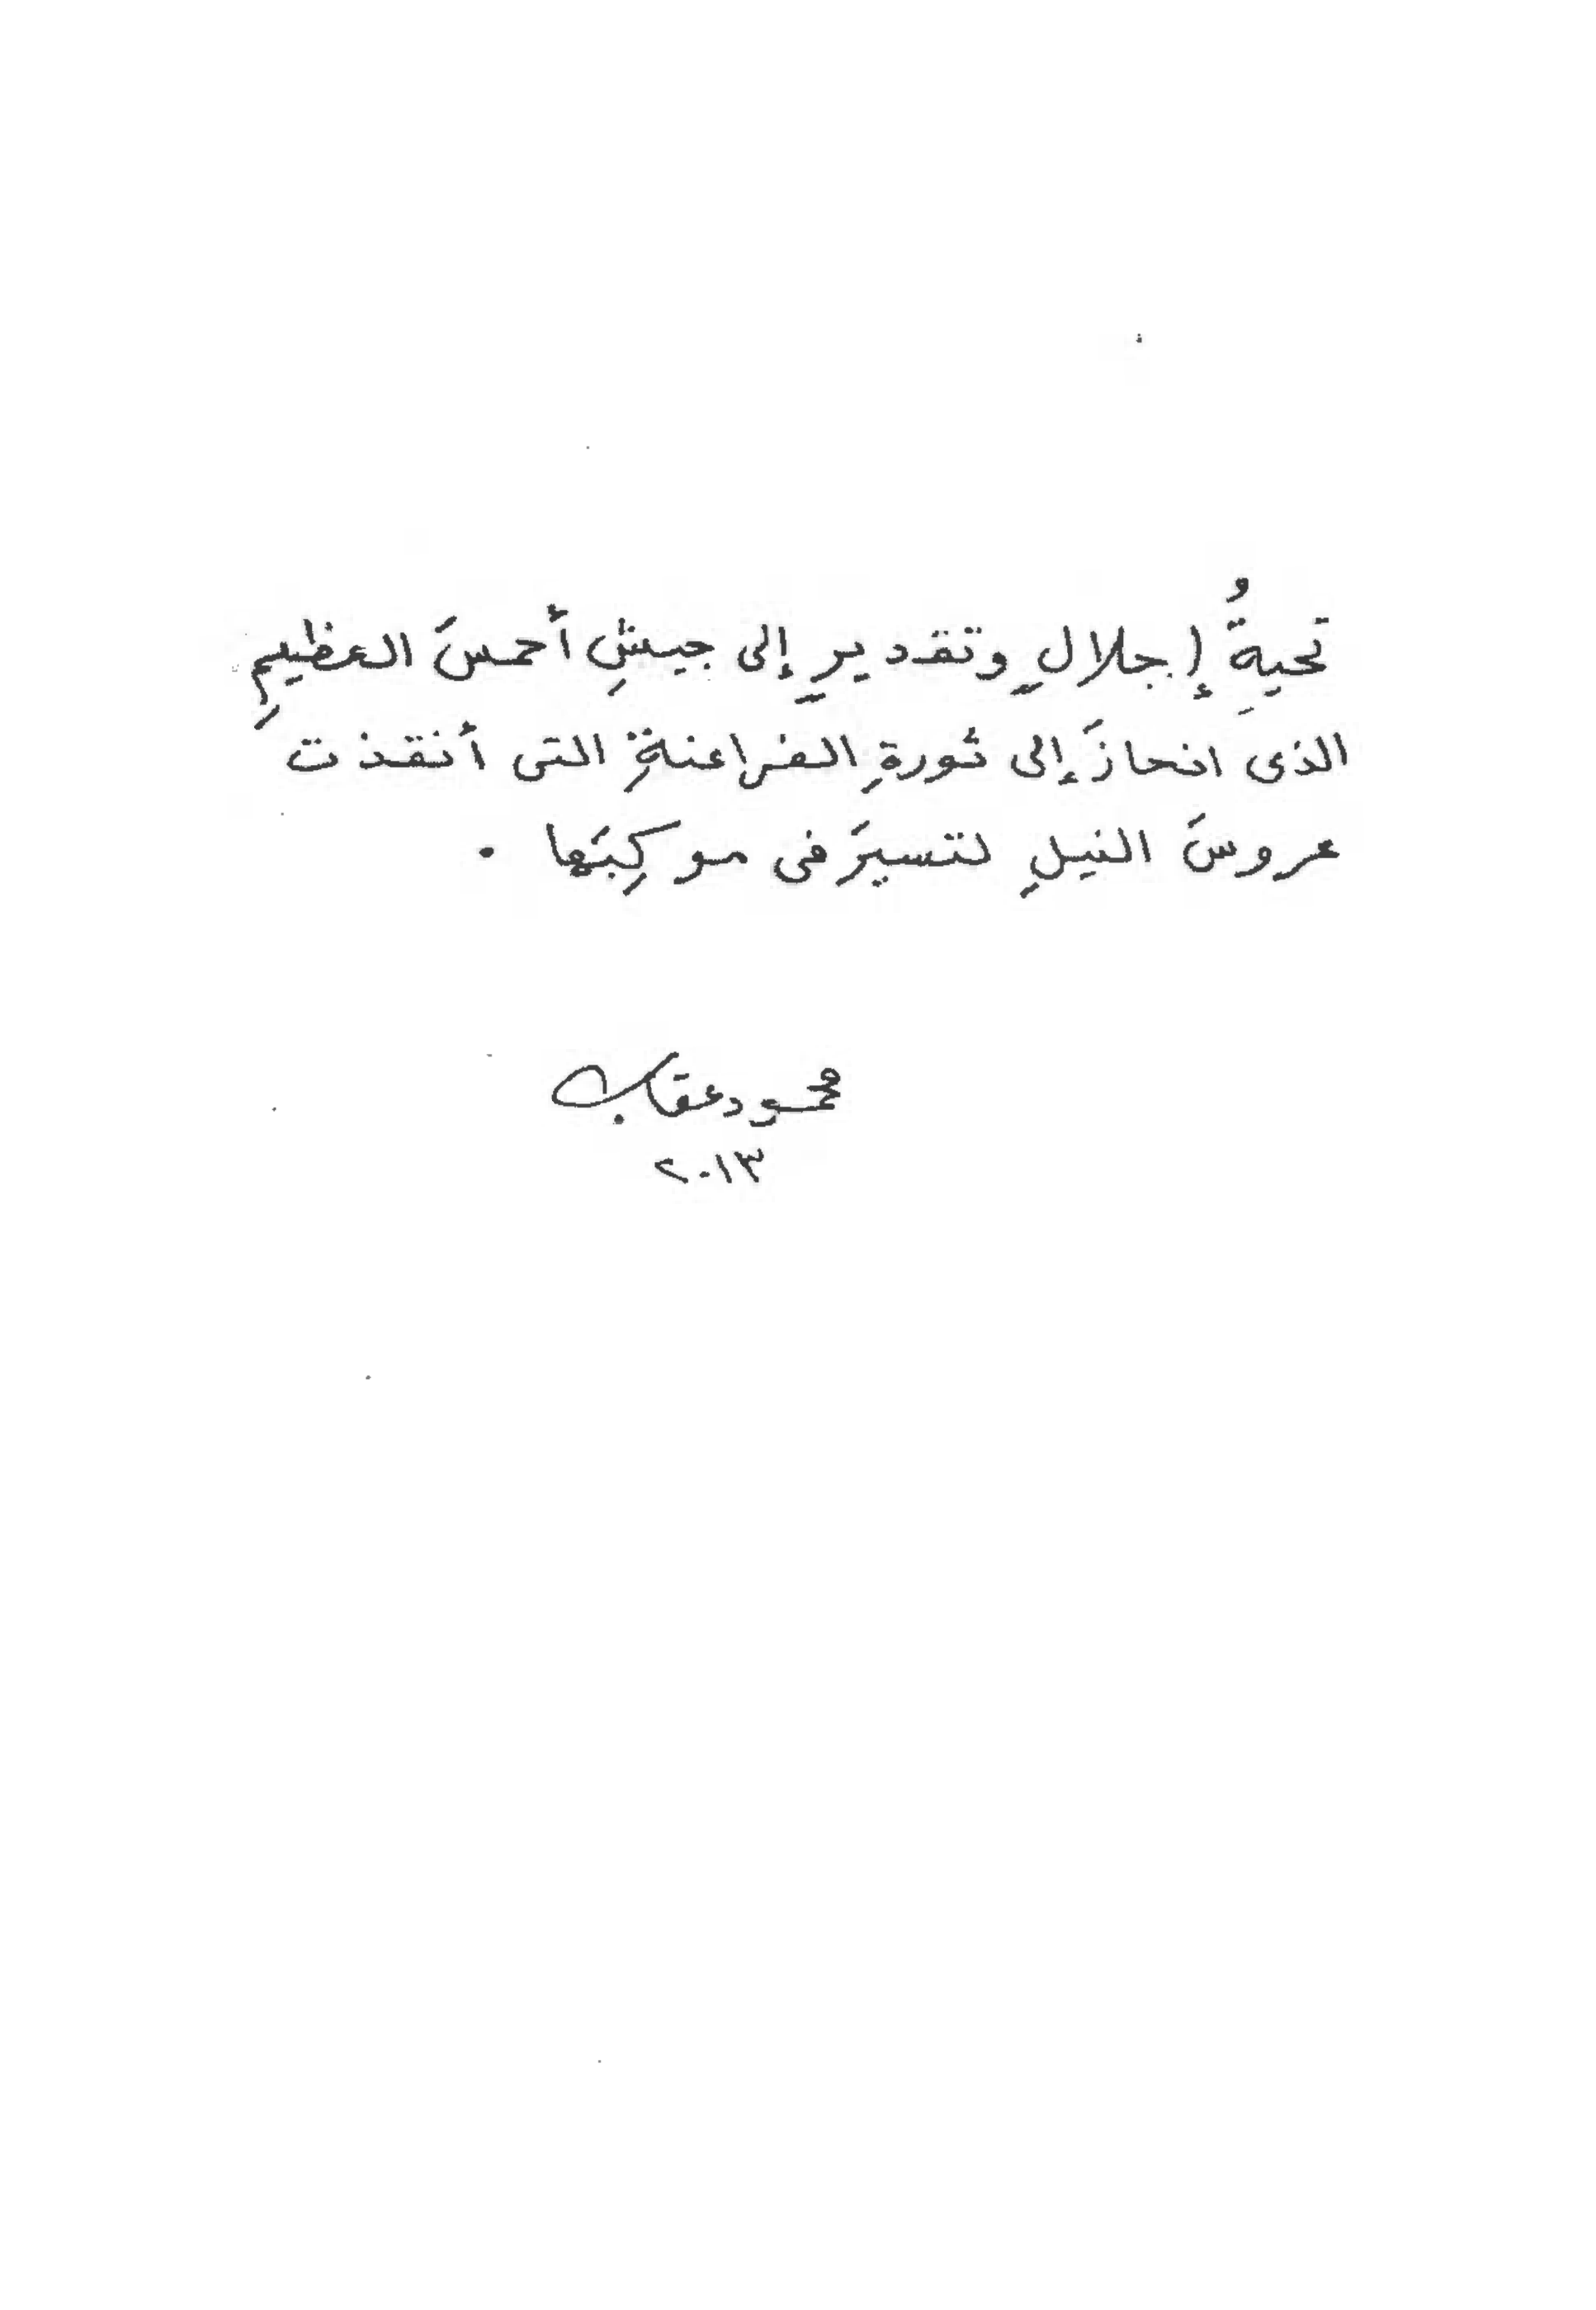 تحيةُ إجلالٍ وتقديرٍ إلى جيشِ أحمسَ العظيمِ
الذى انحازَ إلى ثورةِ الفراعنةِ التى أنقذت
عروسَ النيلِ لتسيرَ فى موكِبَها .
محمود عقاب
٢٠١٣